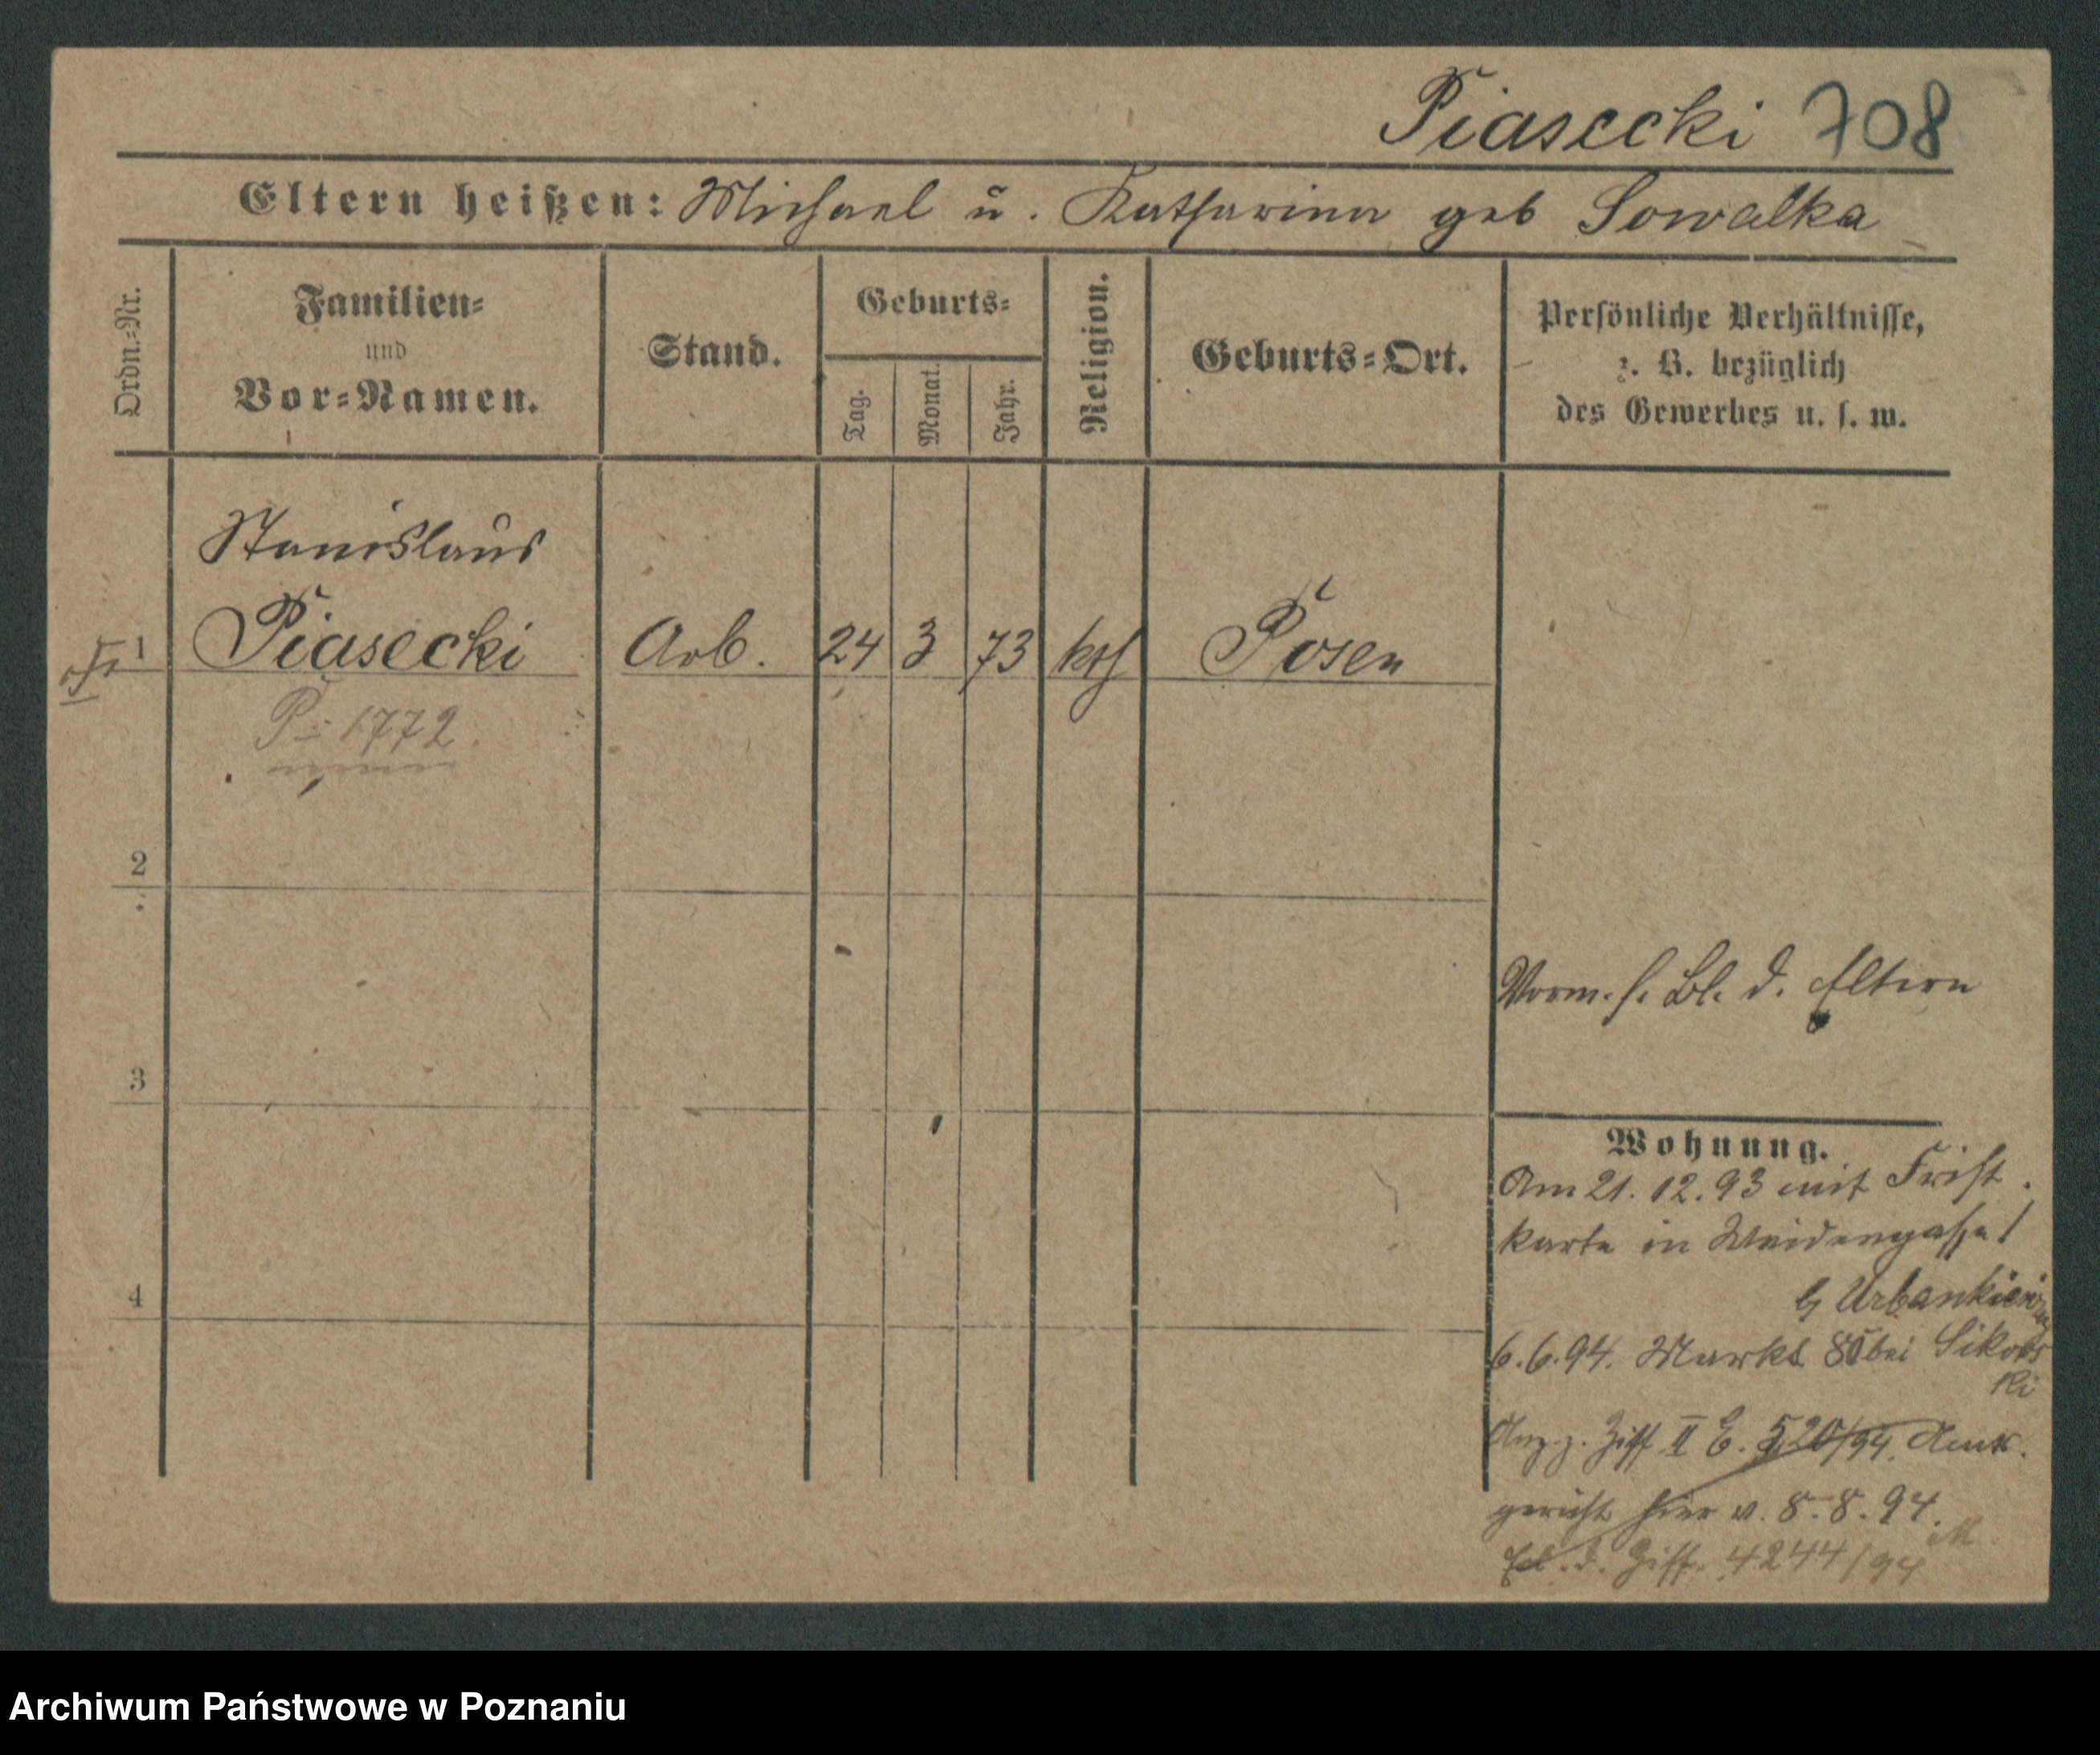 Piasecki 708
Eltern heißen: Michael u. Katharina geb Sowalka
Ordn.-Nr.
Familien-
und
Vor-Namen.
Stand.
Geburts-
Tag.
Monat.
Jahr.
Religion.
Geburts-Ort.
Persönliche Verhältnisse,
z. B. bezüglich
des Gewerbes u. s. w.
Stanislaus
1 Piasecki Arb. 24 3 73 kth Posen
P. 1772.
2
3
4
Vorm. s. Bl. d. Eltern
Wohnung.
Am 21. 12. 93 mit Frist.
karte in Weidengasse 1
b/ Urbankiewicz
6.6.94. Markt 80 bei Sikors
ki
Anz. z. Ziff II E. 520/94. Amts.
gericht hier v. 8.8.94.
Erl. d. Ziff. 4244/94
Archiwum Państwowe w Poznaniu